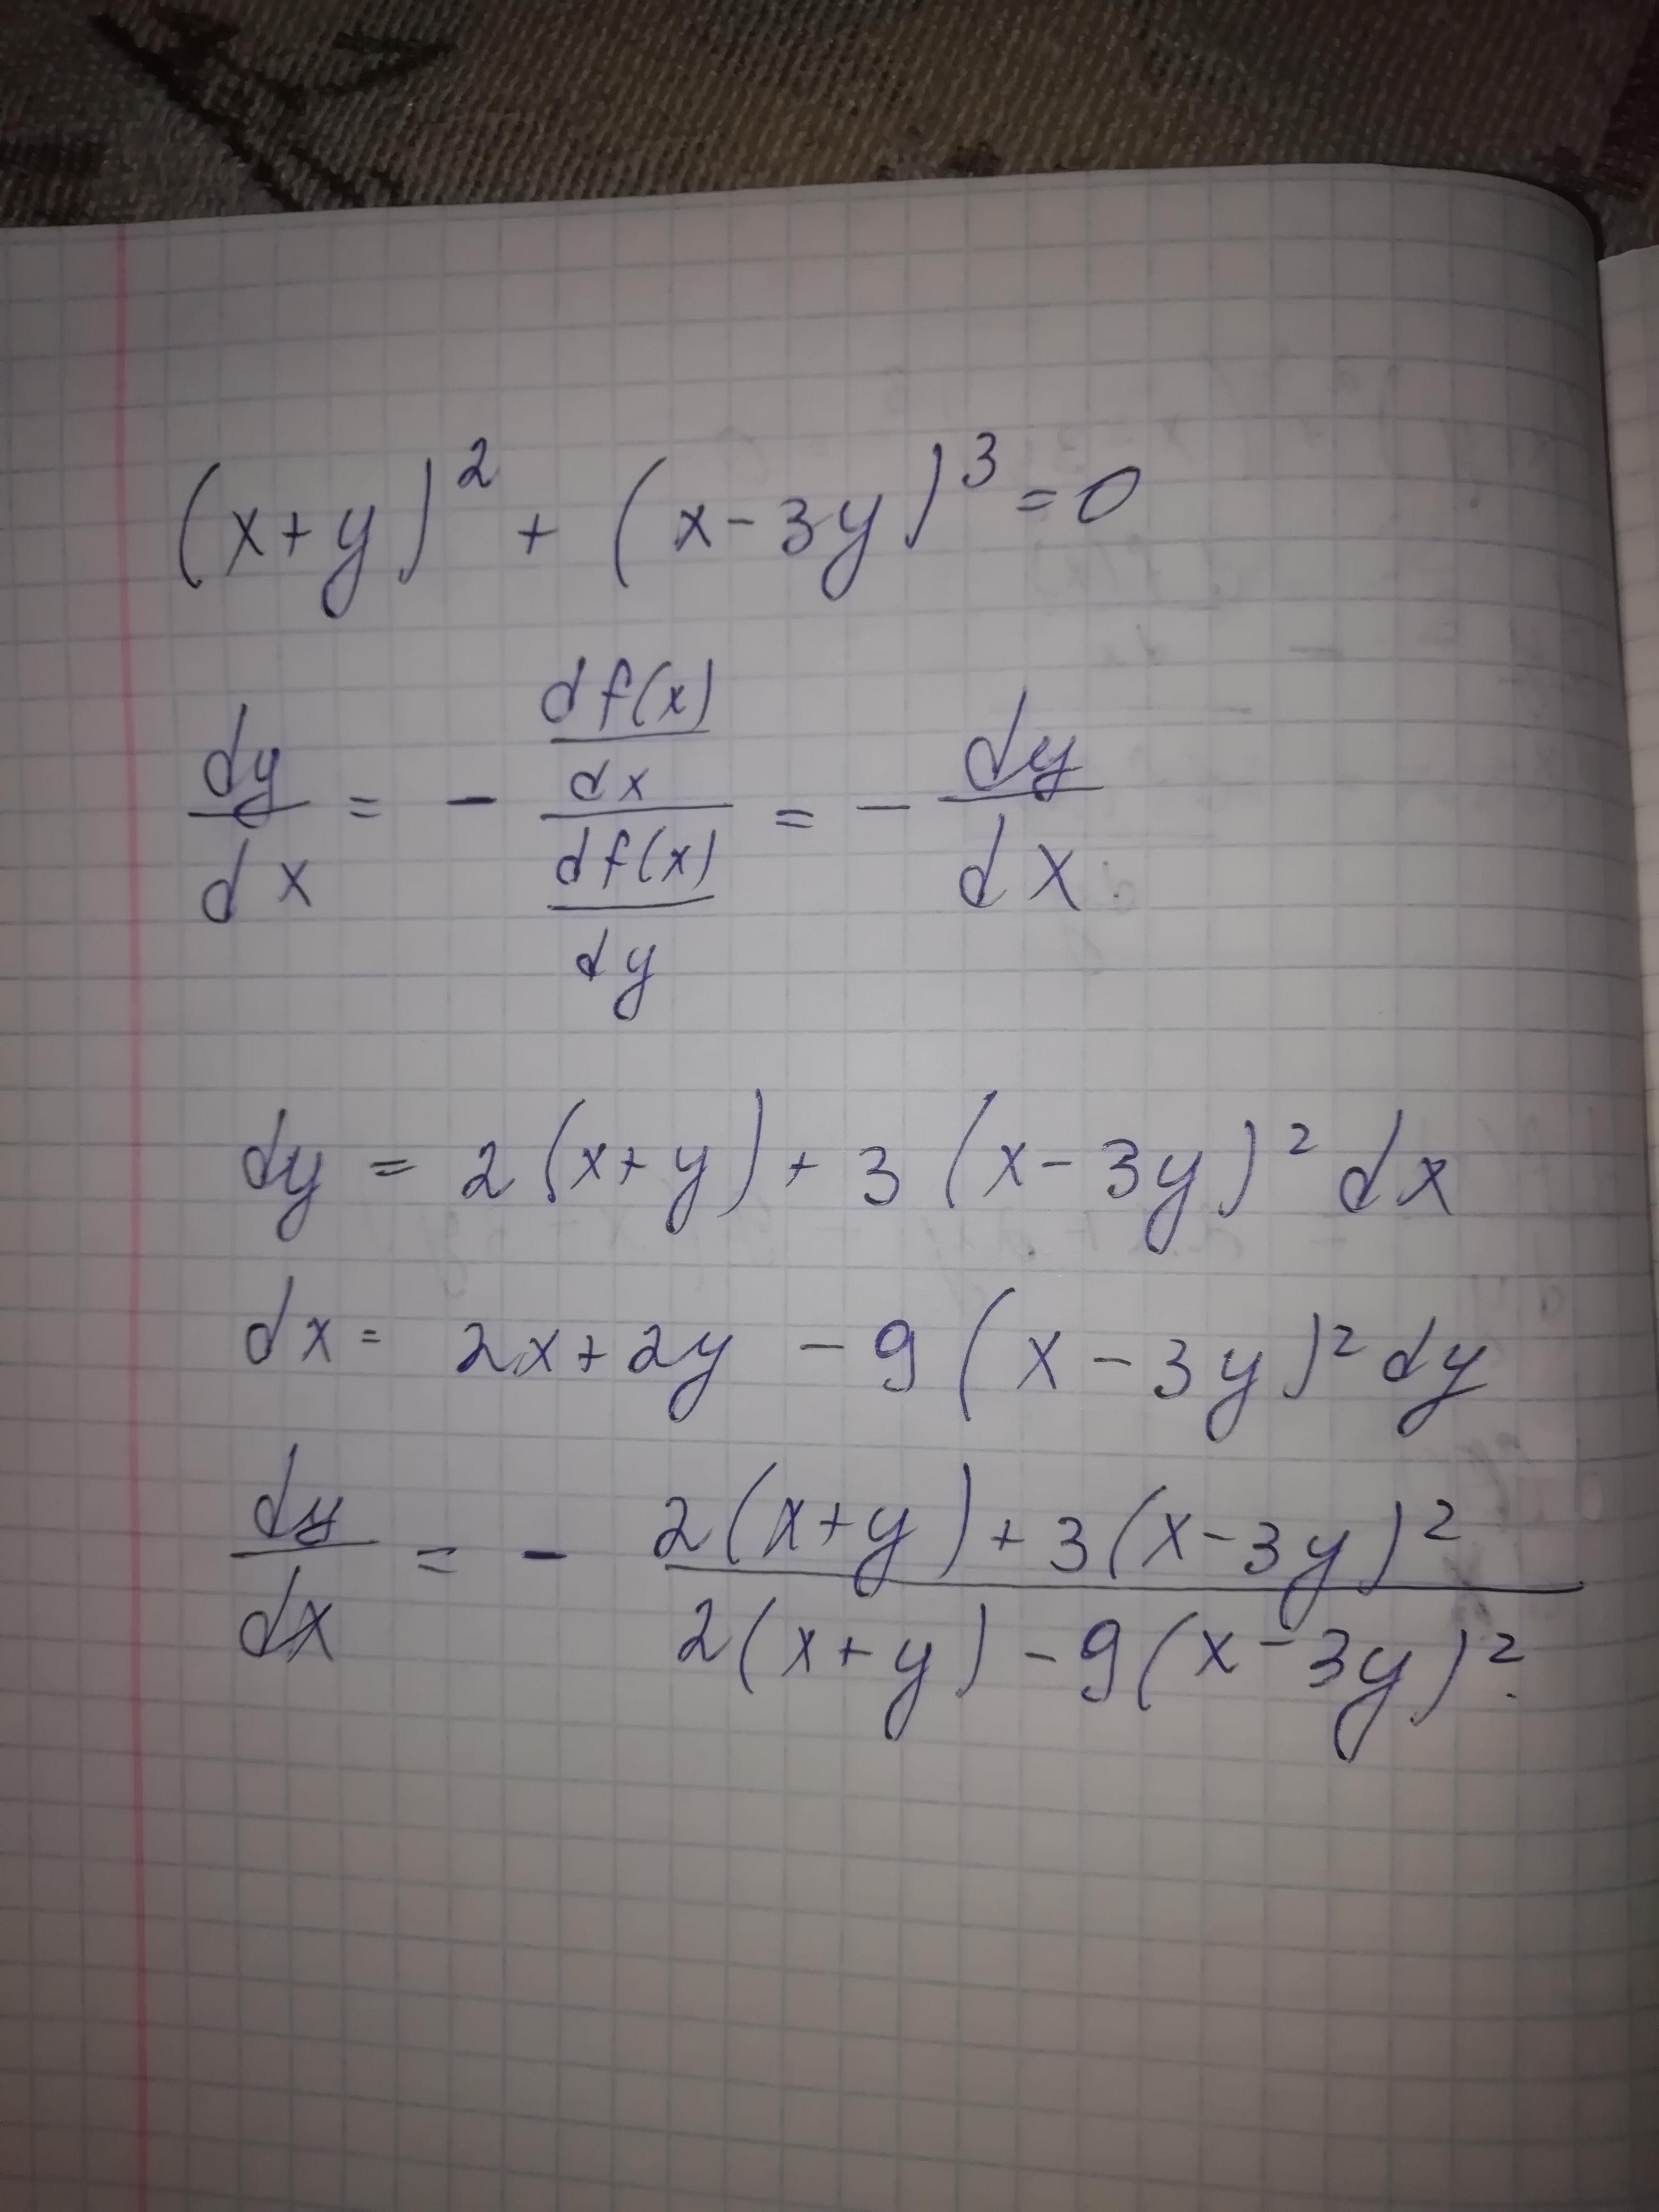 (x+y)² + (x-3y)³ = 0
dy/dx = - (df(x)/dx)/(df(x)/dy) = - dy/dx
dy = 2(x+y) + 3(x-3y)² dx
dx = 2x+2y - 9(x-3y)² dy
dy/dx = - (2(x+y)+3(x-3y)²)/(2(x+y)-9(x-3y)²)